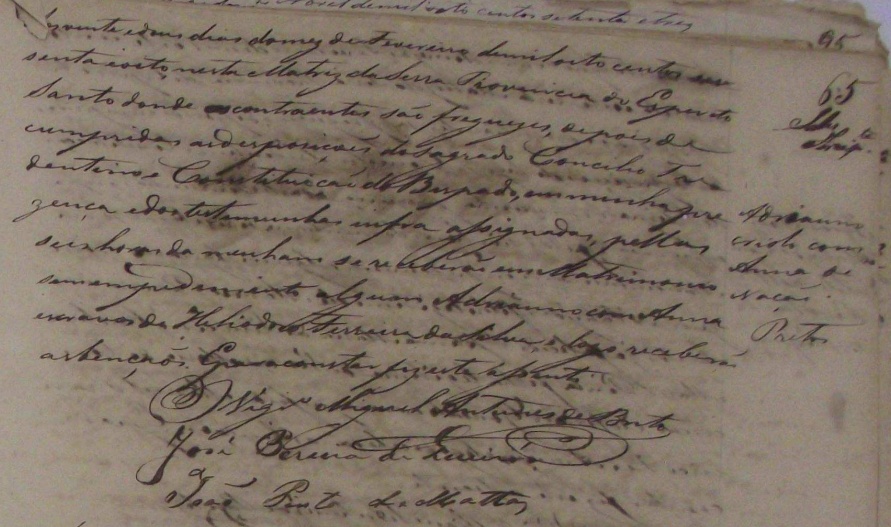 de mil oito centos setenta e tres
95
Aos vinte e dous dias do mez de Fevereiro de mil oito centos ses
senta e oito, nesta Matriz da Serra Provincia do Espirito
Santo donde os contraentes são freguezes, depois de
cumpridas as desposições do Sagrado Concilio Tri
dentino e Constituição do Bispado, em minha pre
zença e das testemunhas infra assignadas, pellas
seis horas da menham se receberão em Matrimonio
sem empedimento alguem Adrianno com Anna
escravos de Heliodoro Ferreira da Silva, e logo receberão
as bençãos. E para constar fiz este assento.
Vigrº Miguel Antunes de Brito
José Pereira de
João Pinto de Mattos
65
Adrianno
criolo com
Anna de
Nação.
Pretos